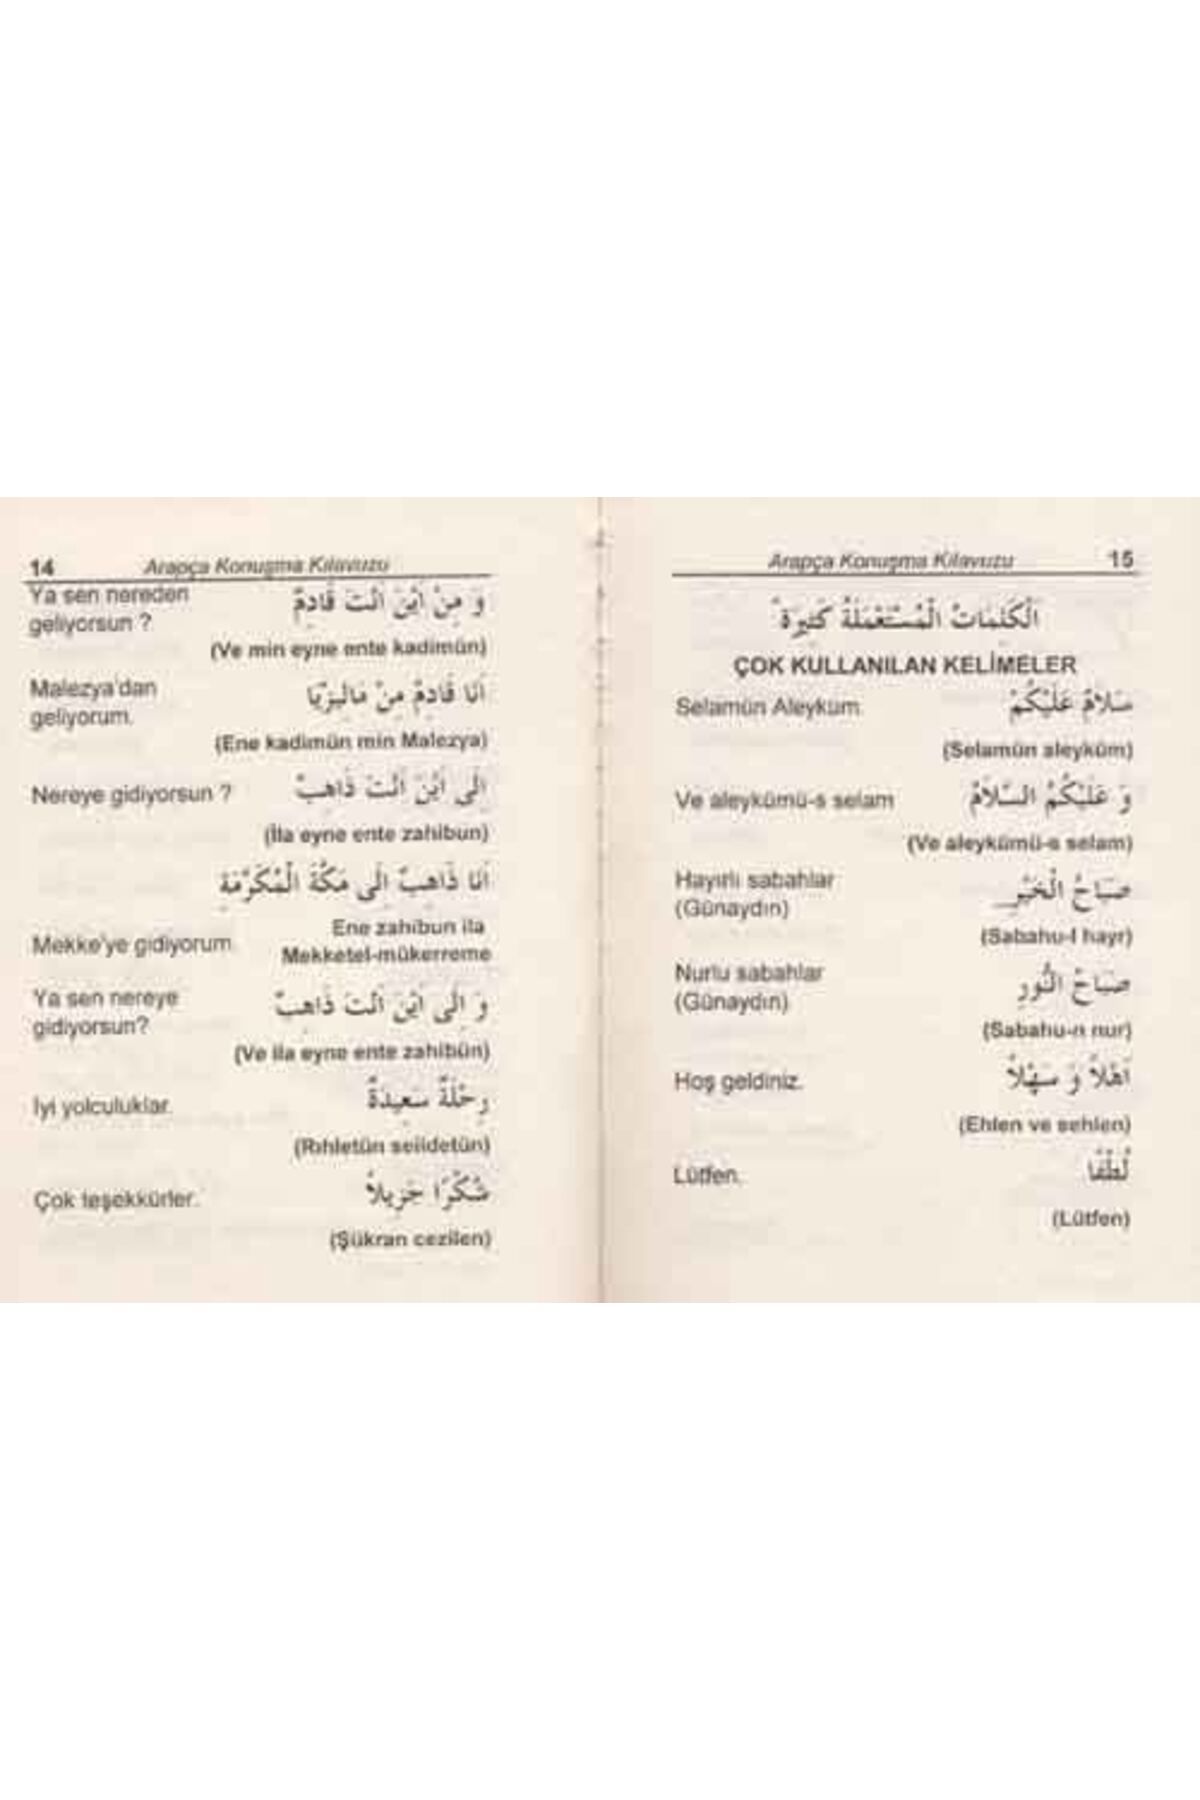 14 Arapça Konuşma Kılavuzu
Ya sen nereden وَ مِنْ اَيْنَ اَنْتَ قَادِمٌ
geliyorsun ?
(Ve min eyne ente kadimün)
Malezya'dan اَنَا قَادِمٌ مِنْ مَالِيزْيَا
geliyorum.
(Ene kadimün min Malezya)
Nereye gidiyorsun ? اِلَى اَيْنَ اَنْتَ ذَاهِبٌ
(İla eyne ente zahibun)
اَنَا ذَاهِبٌ اِلَى مَكَّةَ الْمُكَرَّمَةِ
Ene zahibun ila
Mekke'ye gidiyorum. Mekketel-mükerreme
Ya sen nereye وَ اِلَى اَيْنَ اَنْتَ ذَاهِبٌ
gidiyorsun?
(Ve ila eyne ente zahibün)
İyi yolculuklar. رِحْلَةٌ سَعِيدَةٌ
(Rıhletün seiidetün)
Çok teşekkürler. شُكْرًا جَزِيلاً
(Şükran cezilen)
Arapça Konuşma Kılavuzu 15
اَلْكَلِمَاتُ الْمُسْتَعْمَلَةُ كَثِيرَةً
ÇOK KULLANILAN KELİMELER
Selamün Aleyküm. سَلاَمٌ عَلَيْكُمْ
(Selamün aleyküm)
Ve aleykümü-s selam وَ عَلَيْكُمُ السَّلاَمُ
(Ve aleykümü-s selam)
Hayırlı sabahlar صَبَاحُ الْخَيْرِ
(Günaydın)
(Sabahu-l hayr)
Nurlu sabahlar صَبَاحُ النُّورِ
(Günaydın)
(Sabahu-n nur)
Hoş geldiniz. اَهْلاً وَ سَهْلاً
(Ehlen ve sehlen)
Lütfen. لُطْفًا
(Lütfen)